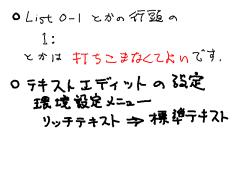 ○ List 0-1 とかの行頭の
1:
とかは 打ちこまなくてよいです.
○ テキストエディットの設定
環境設定メニュー
リッチテキスト ⇒ 標準テキスト